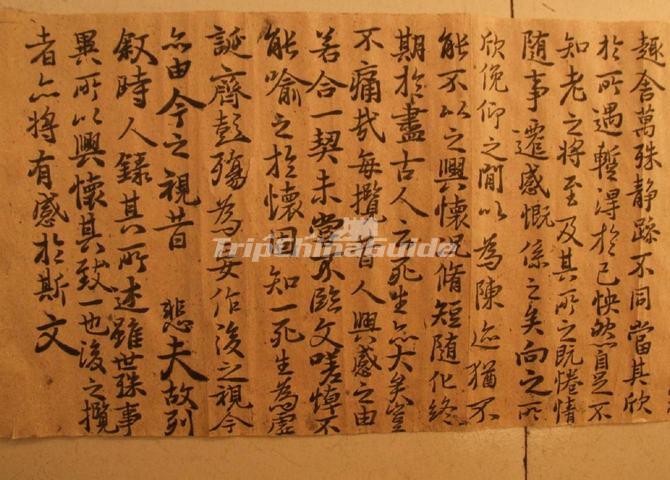 趣舍萬殊静躁不同當其欣
於所遇暫得於己怏然自足不
知老之将至及其所之既惓情
随事遷感慨係之矣向之所
欣俛仰之閒以為陳迹猶不
能不以之興懷況脩短随化終
期於盡古人云死生亦大矣豈
不痛哉每攬昔人興感之由
若合一契未嘗不臨文嗟悼不
能喻之於懷固知一死生為虛
誕齊彭殤為妄作後之視今
亦由今之視昔 悲夫故列
敘時人録其所述雖世殊事
異所以興懷其致一也後之攬
者亦将有感於斯文
TripChinaGuide